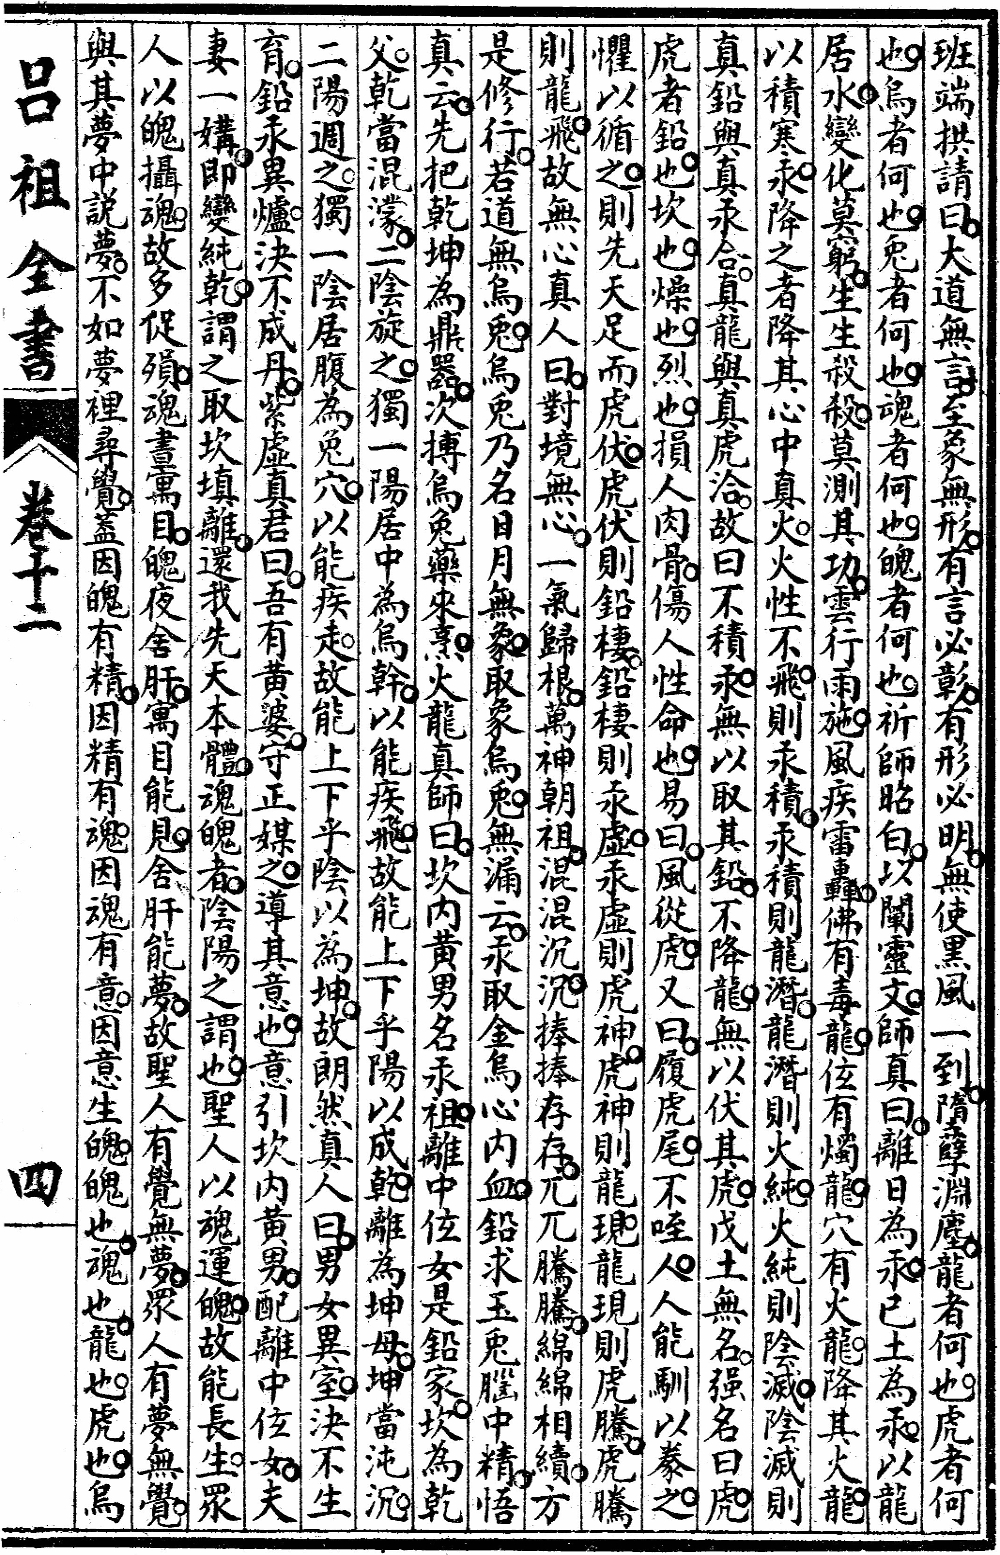 班端拱請曰大道無言至象無形有言必彰有形必明無使黑風一到隋孽淵塵龍者何也虎者何
也烏者何也兎者何也魂者何也魄者何也祈師昭白以闡靈文師真曰離日為汞己土為汞以龍
居水變化莫窮生生殺殺莫測其功雲行雨施風疾雷轟佛有毒龍位有燭龍穴有火龍降其火龍
以積寒汞降之者降其心中真火火性不飛則汞積汞積則龍潛龍潛則火純火純則陰滅陰滅則
真鉛與真汞合真龍與真虎洽故曰不積汞無以取其鉛不降龍無以伏其虎戊土無名强名曰虎
虎者鉛也坎也燥也烈也損人肉骨傷人性命也易曰風從虎又曰履虎尾不咥人人能馴以豢之
懼以循之則先天足而虎伏虎伏則鉛棲鉛棲則汞虛汞虛則虎神虎神則龍現龍現則虎騰虎騰
則龍飛故無心真人曰對境無心一氣歸根萬神朝祖混混沉沉捧捧存存兀兀騰騰綿綿相續方
是修行若道無烏兎烏兎乃名日月無象取象烏兎無漏云汞取金烏心內血鉛求玉兎腦中精悟
真云先把乾坤為鼎器次搏烏兎藥來烹火龍真師曰坎內黃男名汞祖離中位女是鉛家坎為乾
父乾當混濛二陰旋之獨一陽居中為烏幹以能疾飛故能上下乎陽以成乾離為坤母坤當沌沉
二陽週之獨一陰居腹為兎穴以能疾走故能上下乎陰以為坤故朗然真人曰男女異室決不生
育鉛汞異爐決不成丹紫虛真君曰吾有黃婆守正媒之導其意也意引坎內黃男配離中位女夫
妻一媾即變純乾謂之取坎填離還我先天本體魂魄者陰陽之謂也聖人以魂運魄故能長生眾
人以魄攝魂故多促殞魂晝寓目魄夜舍肝寓目能見舍肝能夢故聖人有覺無夢眾人有夢無覺
與其夢中説夢不如夢裡尋覺蓋因魄有精因精有魂因魂有意因意生魄魄也魂也龍也虎也烏
呂祖全書
卷十二
四